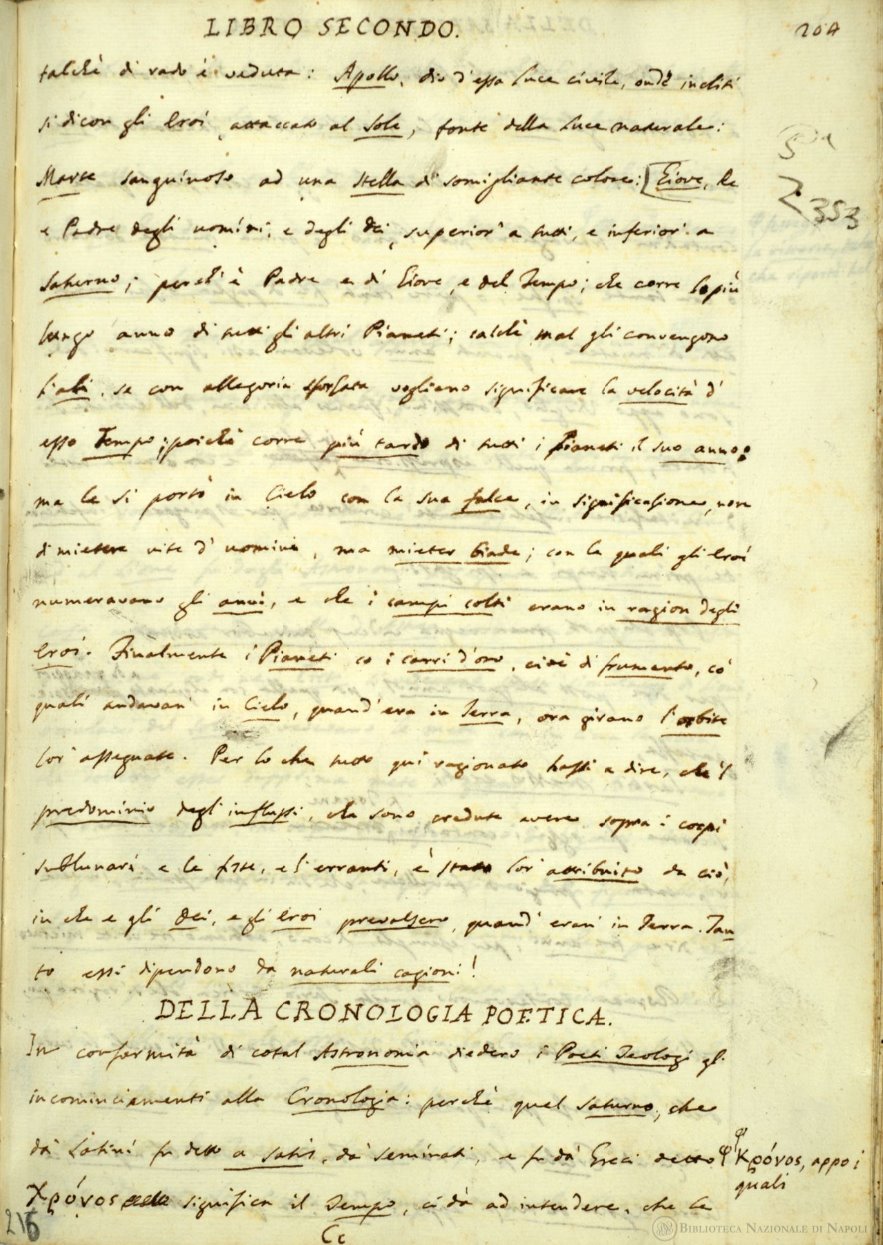 LIBRO SECONDO.
204
talchè di rado è veduta: Apollo, dio d'essa luce civile, ond'è incliti
si dicon gli Eroi, attaccato al Sole, fonte della luce naturale:
Marte sanguinoso ad una stella di somigliante colore: [Giove, Re
e Padre degli uomini, e degli Dei, superior' a tutti, e inferior' a
Saturno; perch'è Padre e di Giove, e del Tempo; che corre lo più
lungo anno di tutti gli altri Pianeti; talchè mal gli convengono
l'ali, se con allegoria sforzata vogliano significare la velocità d'
esso Tempo; poichè corre più tardo di tutti i Pianeti il suo anno:
ma le si portò in Cielo con la sua falce, in significazione, non
di mietere vite d' uomini, ma mieter biade; con le quali gli Eroi
numeravano gli anni, e che i campi colti erano in ragion degli
Eroi. Finalmente i Pianeti co i carri d'oro, cioè di frumento, co'
quali andavan' in Cielo, quand' era in Terra, ora girano l'orbite
lor' assegnate. Per lo che tutto qui ragionato hassi a dire, che 'l
predominio degl' influssi, che sono credute avere sopra i corpi
sublunari e le fisse, e l' erranti, è stato lor' attribuito da ciò,
in che e gli Dei, e gli Eroi prevalsero, quand' eran' in Terra. Tan
to essi dipendono da naturali cagioni!
DELLA CRONOLOGIA POETICA.
In conformità di cotal Astronomia diedero i Poeti Teologi gl'
incominciamenti alla Cronologia: perchè quel Saturno, che
da' Latini fu detto a satis, da' seminati, e fu da' Greci detto
Κρόνος, appo i
quali
Χρόνος significa il Tempo, ci dà ad intendere, che le
Cc
353
216
BIBLIOTECA NAZIONALE DI NAPOLI